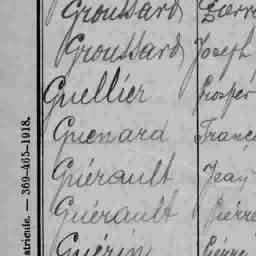 Groussard Pierre
Groussard Joseph
Guellier Prosper
Guenard Franç
Guérault Jean
Guérault Pierre
Guérin Pierre
atricule. — 369-465-1918.